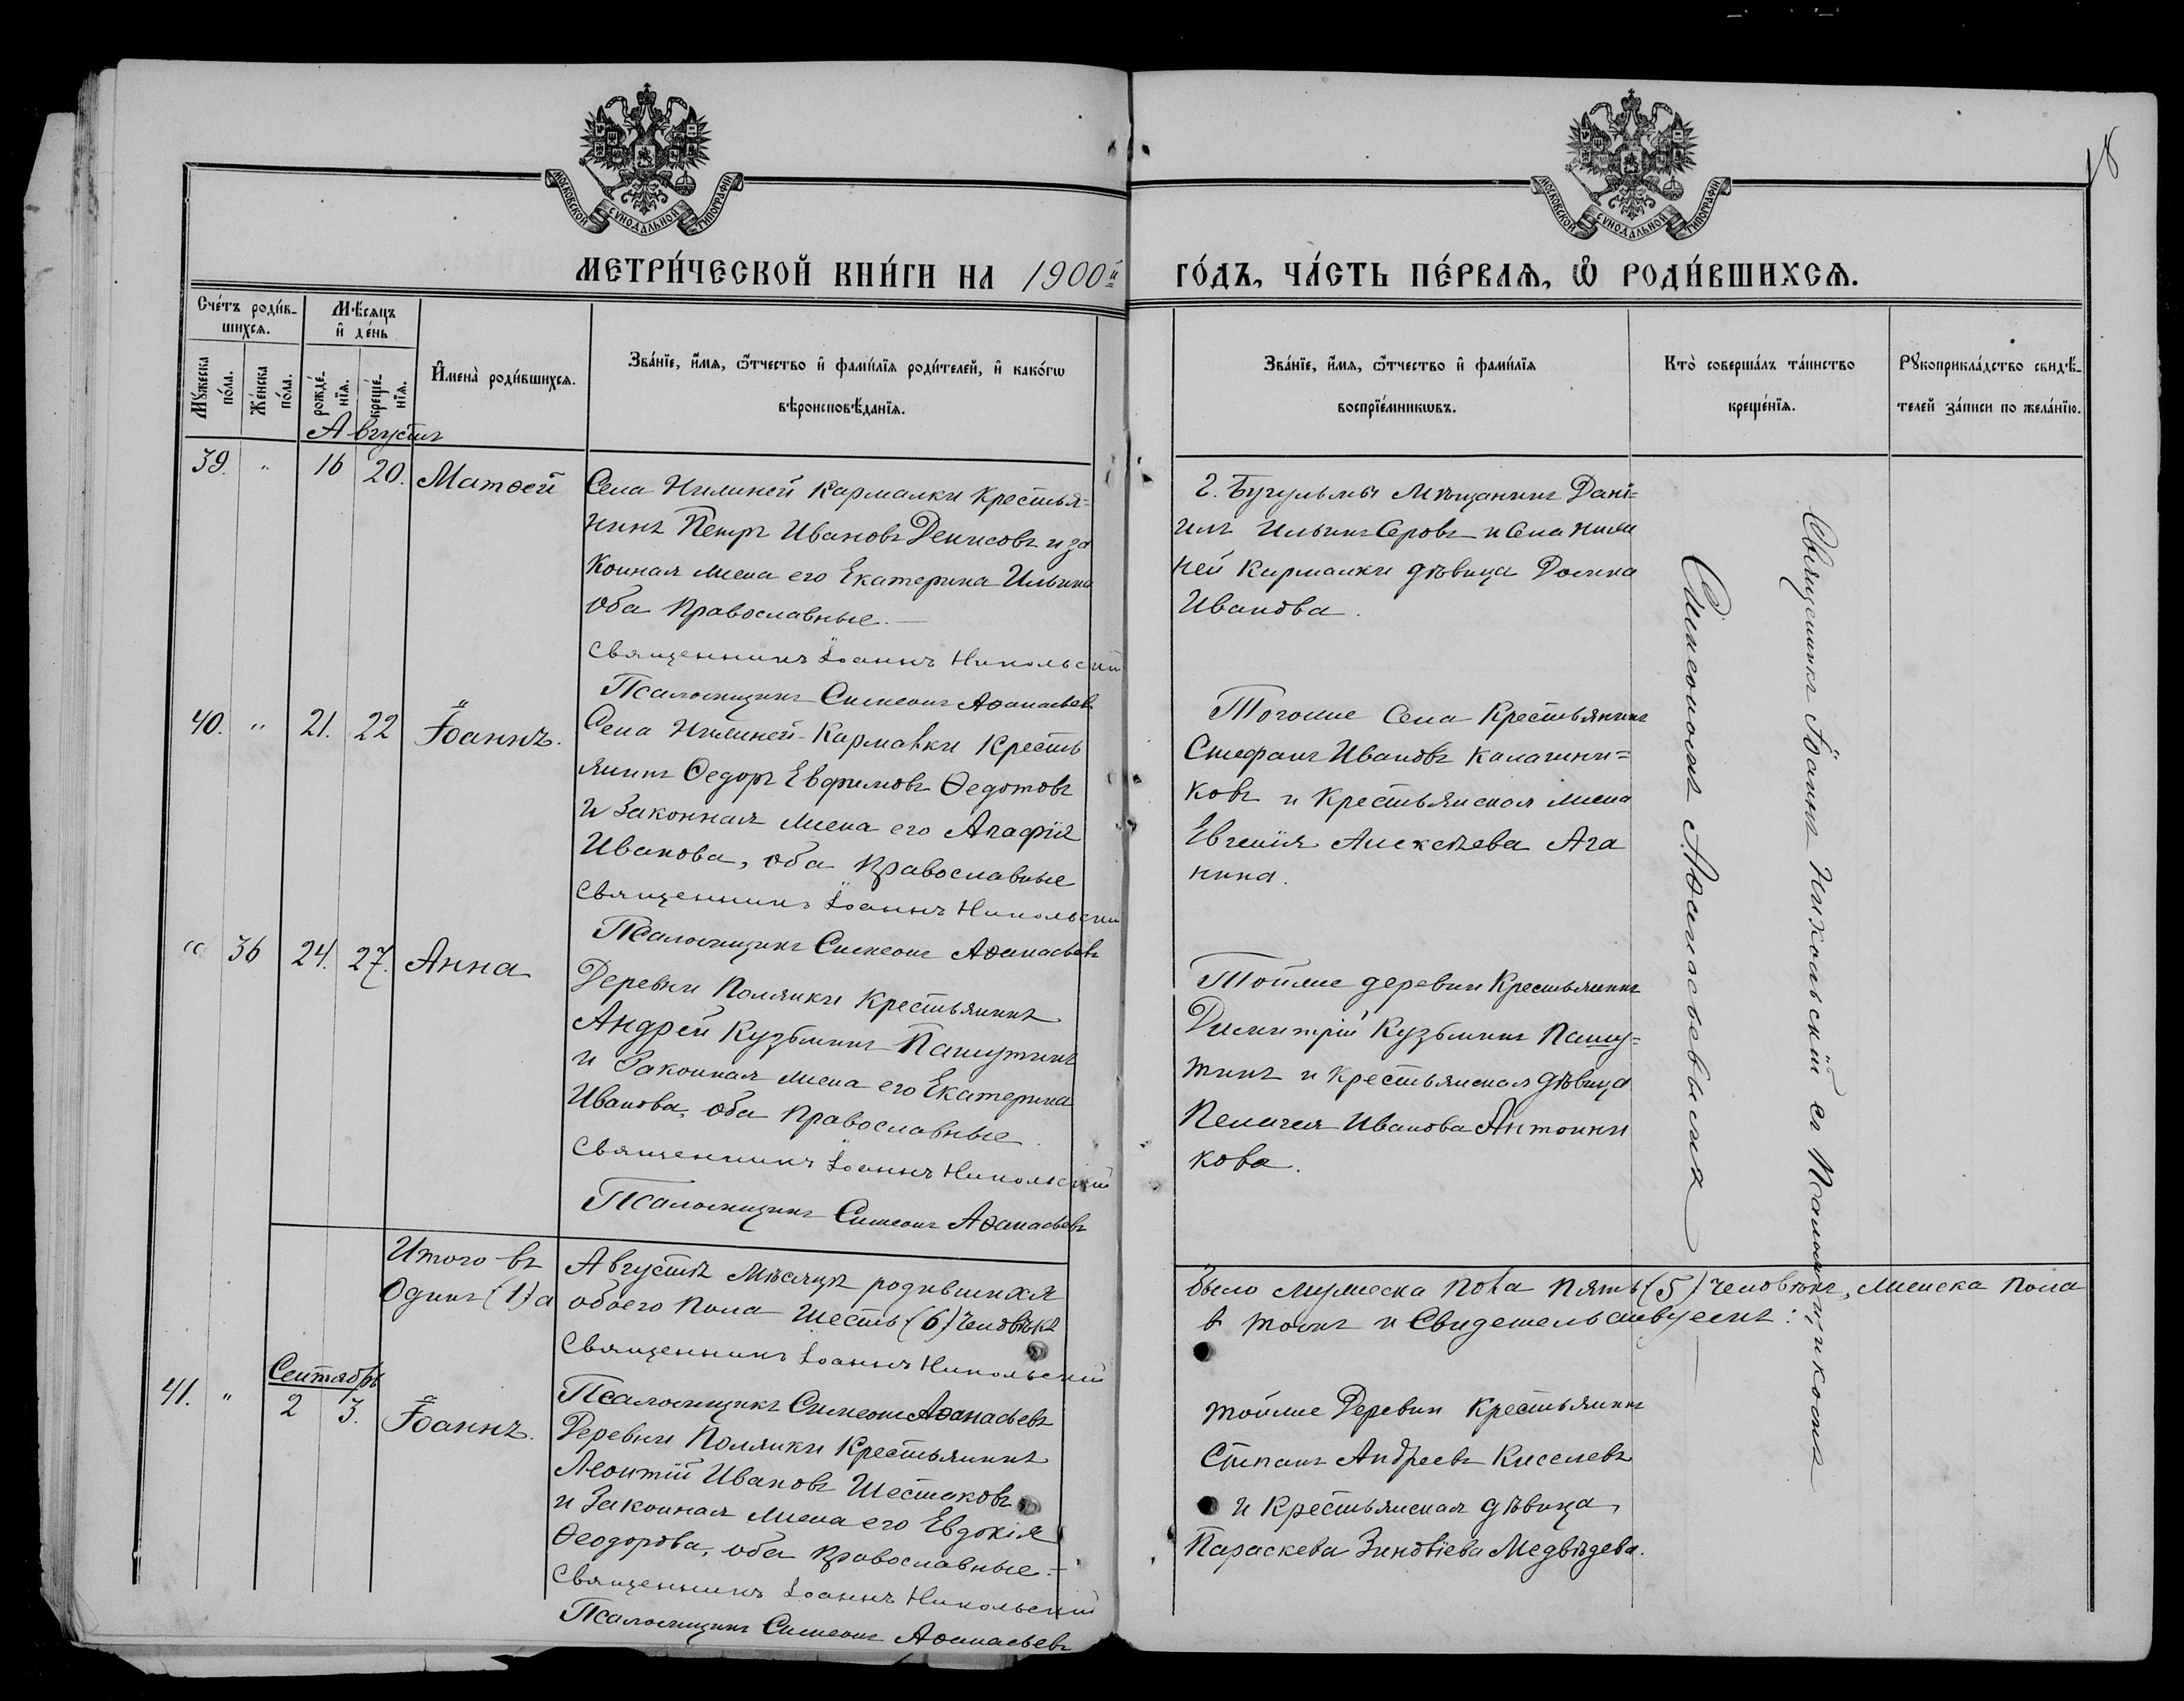 МОСКОВСКОЙ СѴНОДАЛЬНОЙ ТИПОГРАФІИ
МОСКОВСКОЙ СѴНОДАЛЬНОЙ ТИПОГРАФІИ
МЕТРИ́ЧЕСКОЙ КНИ́ГИ НА 1900й
ГО́ДЪ, ЧА́СТЬ ПЕ́РВАЯ, Ѡ҆ РОДИ́ВШИХСЯ.
Сче́тъ роди́в-
шихся.
Мꙋжеска по́ла.
Же́нска по́ла.
Мѣ́сяцъ
и҆ де́нь
рожде́-
нїя.
креще́-
нїя.
И҆мена̀ роди́вшихся.
Зва́нїе, и҆́мя, ѻ҆́тчество и҆ фами́лїя роди́телей, и҆ како́гѡ
вѣроисповѣ́данїя.
Зва́нїе, и҆́мя, ѻ҆́тчество и҆ фами́лїя
воспрїе́мникѡвъ.
Кто̀ соверша́лъ та́инство
креще́нїя.
Рꙋкоприкла́дство свидѣ́-
телей за́писи по жела́нїю.
Августъ
39. " 16 20. Матѳей
Села Нижней Кармалки Крестья=
нинъ Петръ Ивановъ Денисовъ и за
конная жена его Екатерина Ильина
оба Православные.—
Священникъ Іоаннъ Никольскій
Псаломщикъ Симеонъ Аѳанасьевъ
Г. Бугульмы Мѣщанинъ Дані=
илъ Ильинъ Серовъ и Села Ниж
ней Кармалки дѣвица Домна
Иванова.
40. " 21. 22 Іоаннъ.
Села Нижней-Кармалки Кресть
янинъ Ѳедоръ Евфимовъ Ѳедотовъ
и Законная жена его Агафія
Иванова, оба Православные
Священникъ Іоаннъ Никольскій
Псаломщикъ Симеонъ Аѳанасьевъ
Тогоже Села Крестьянинъ
Стефанъ Ивановъ Калашни=
ковъ и Крестьянская жена
Евгенія Алексѣева Ага
нина.
" 36 24. 27. Анна
Деревни Полянки Крестьянинъ
Андрей Кузьминъ Пашутинъ
и Законная жена его Екатерина
Иванова, оба Православные.
Священникъ Іоаннъ Никольскій
Псаломщикъ Симеонъ Аѳанасьевъ
Тойже деревни Крестьянинъ
Димитрій Кузьминъ Пашу=
тинъ и Крестьянская дѣвица
Пелагея Иванова Антонни
кова.
Священникъ Іоаннъ Никольскій съ Псаломщикомъ
Симеономъ Аѳанасьевымъ
Итого въ Августѣ Мѣсяцѣ родившихся было мужеска пола пять (5) человѣкъ, женска пола
Одинъ (1) а обоего пола шесть (6) человѣкъ в томъ и Свидетельствуемъ:
Священникъ Іоаннъ Никольскій
Псаломщикъ Симеонъ Аѳанасьевъ
Сентябрь
41. " 2 3. Іоаннъ.
Деревни Полянки Крестьянинъ
Леонтій Ивановъ Шестаковъ
и Законная жена его Евдокія
Ѳеодорова, оба православные.—
Священникъ Іоаннъ Никольскій
Псаломщикъ Симеонъ Аѳанасьевъ
тойже Деревни Крестьянинъ
Степанъ Андреевъ Киселевъ
и Крестьянская дѣвица,
Параскева Зиновіева Медвѣдева.